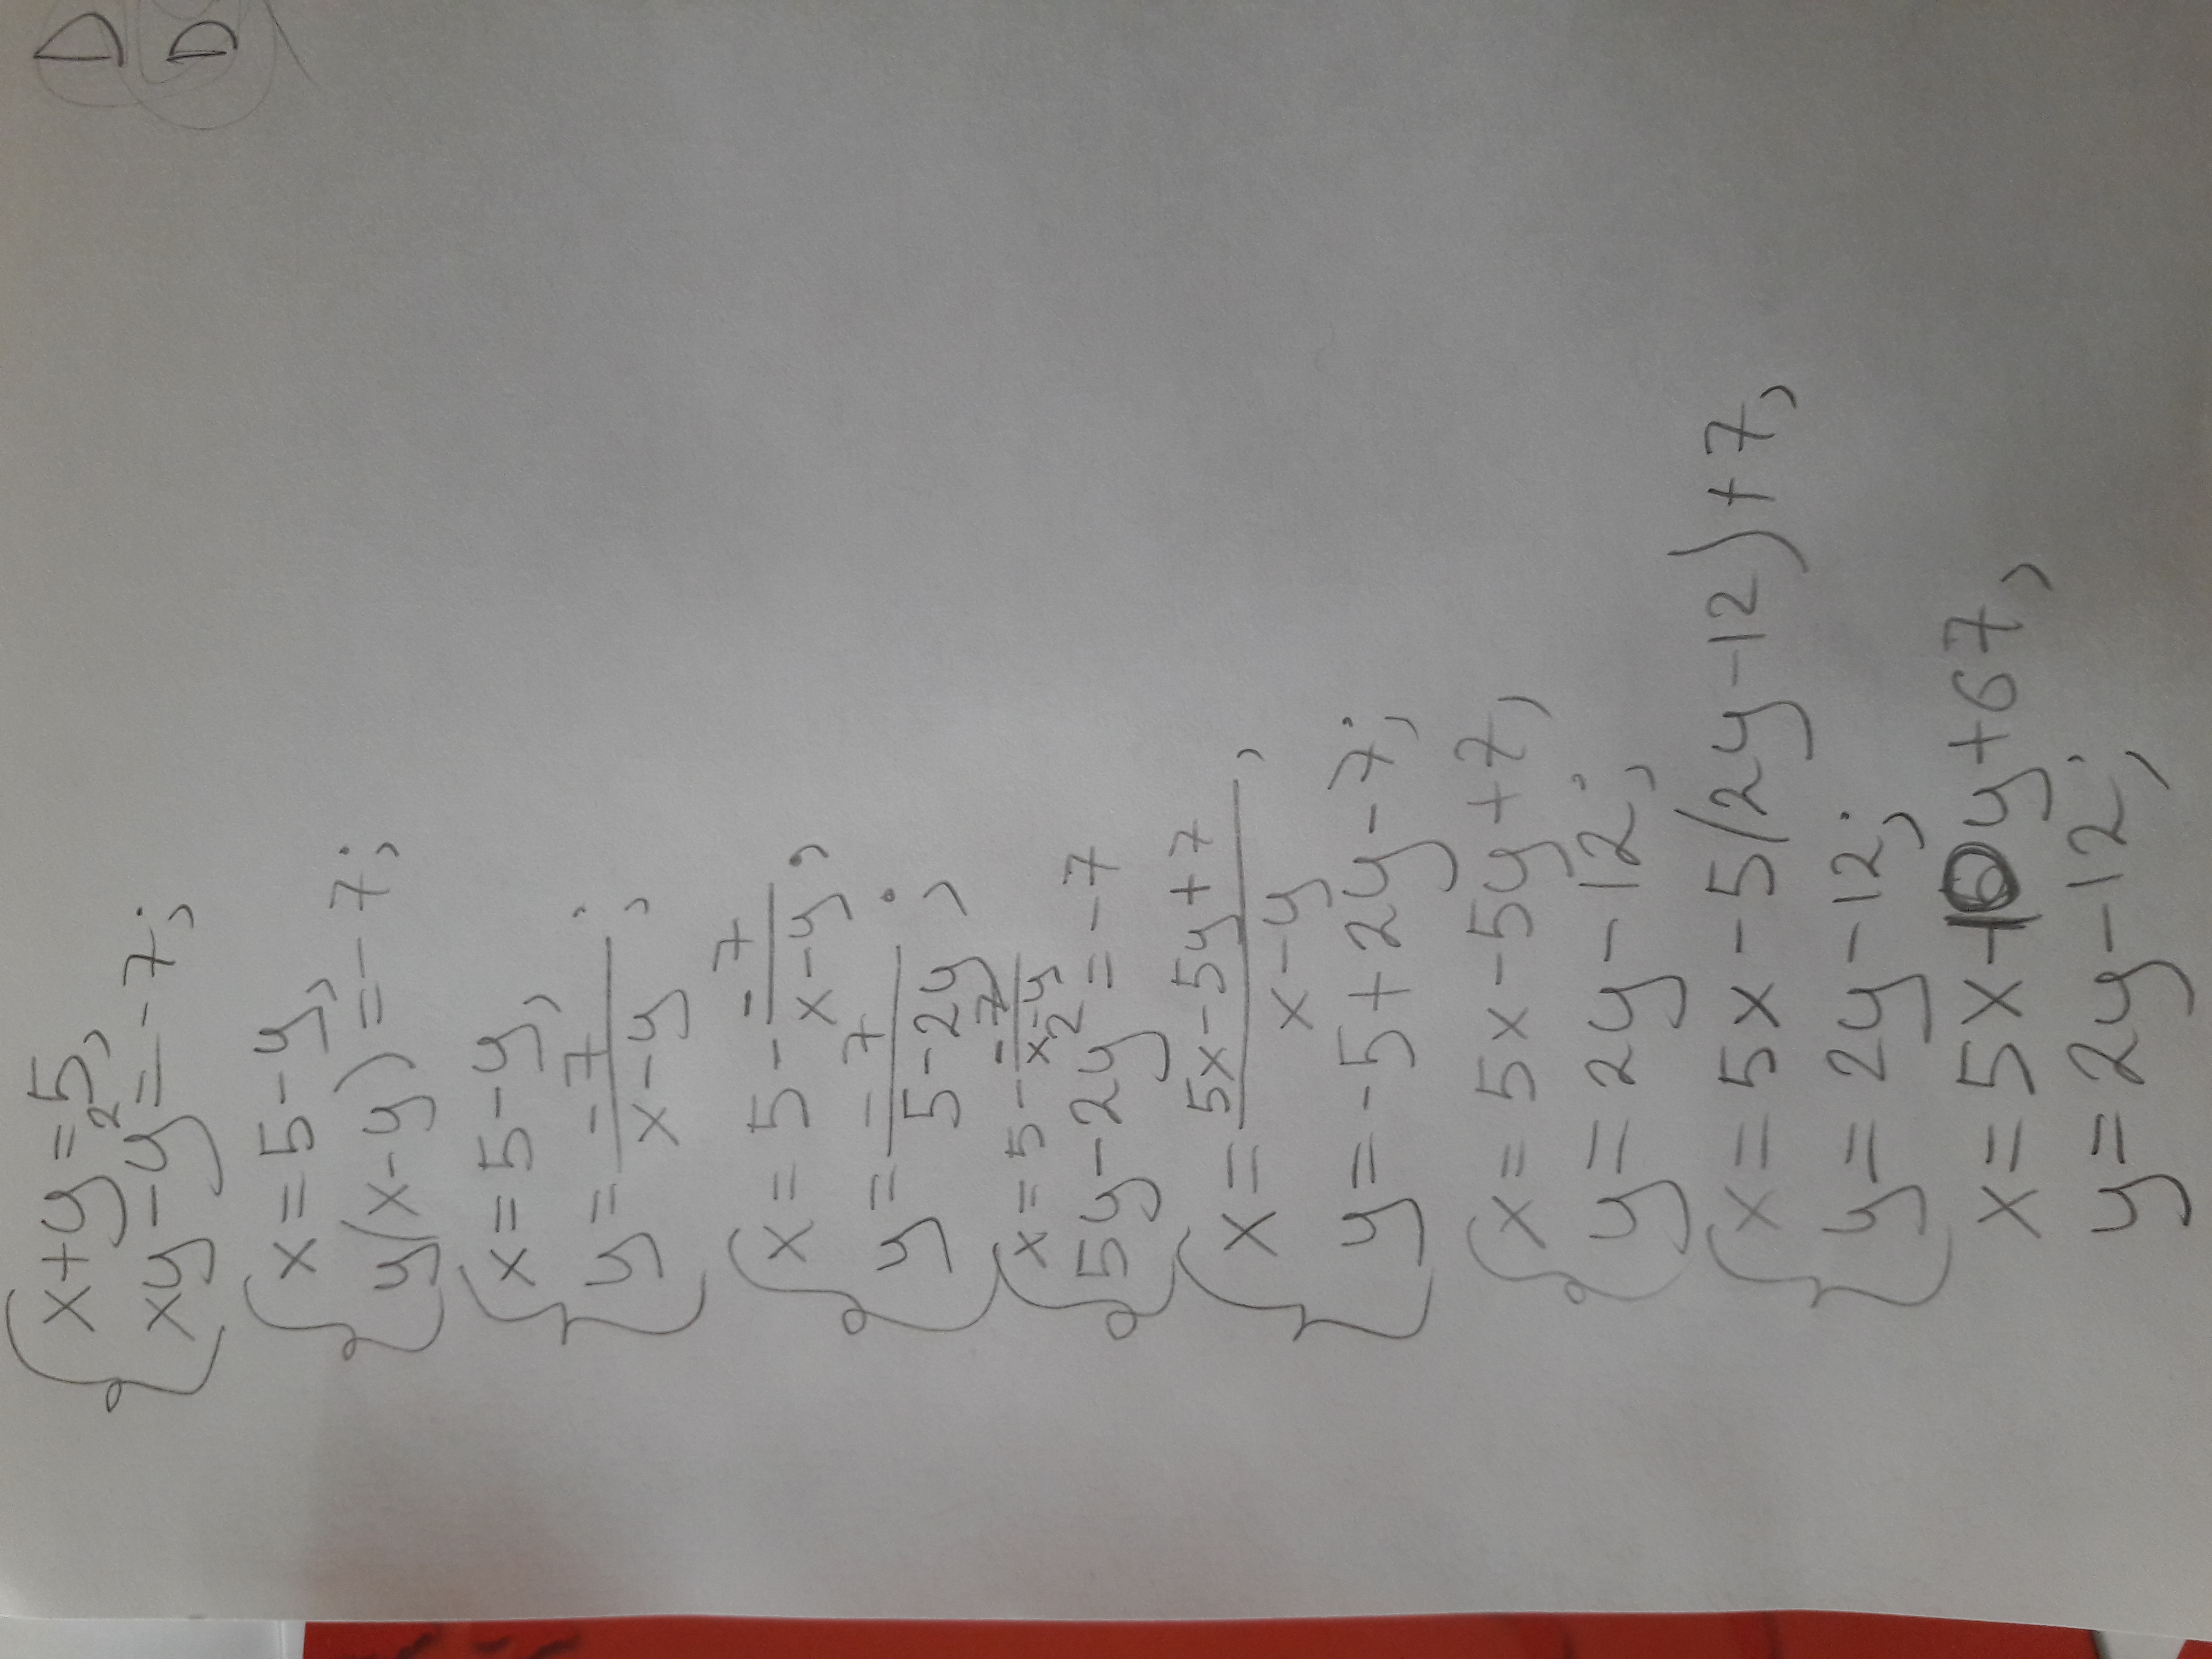 x+y=5,
xy-y²=-7;
x=5-y,
y(x-y)=-7;
x=5-y,
y=-7/x-y;
x=5--7/x-y;
y=-7/5-2y;
x=5--7/x-y
5y-2y²=-7
x=5x-5y+7/x-y,
y=-5+2y-7;
x=5x-5y+7,
y=2y-12;
x=5x-5(2y-12)+7,
y=2y-12;
x=5x-10y+67,
y=2y-12;
D
D